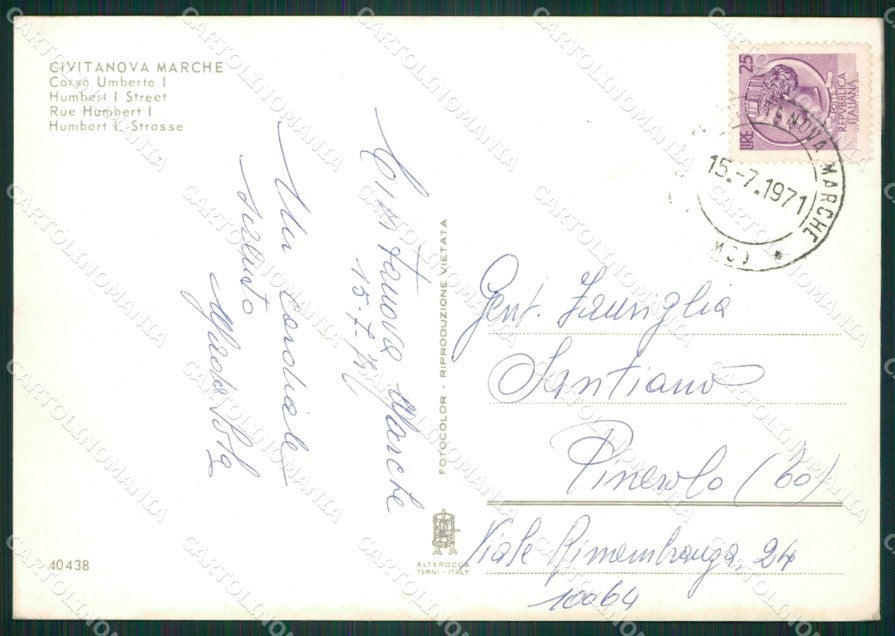 CIVITANOVA MARCHE
Corso Umberto I
Humbert I Street
Rue Humbert I
Humbert I. Strasse
Civitanova Marche
15-7-71
Un cordiale
saluto
FOTOCOLOR - RIPRODUZIONE VIETATA
LIRE 25
POSTE
REPVBBLICA
ITALIANA
TANOVA MARCHE
15.-7.1971
(MC) *
Gent. Famiglia
Santiano
Pinerolo (To)
Viale Rimembranza, 24
10064
ALTEROCCA
TERNI - ITALY
40438
CARTOLINOMANIA